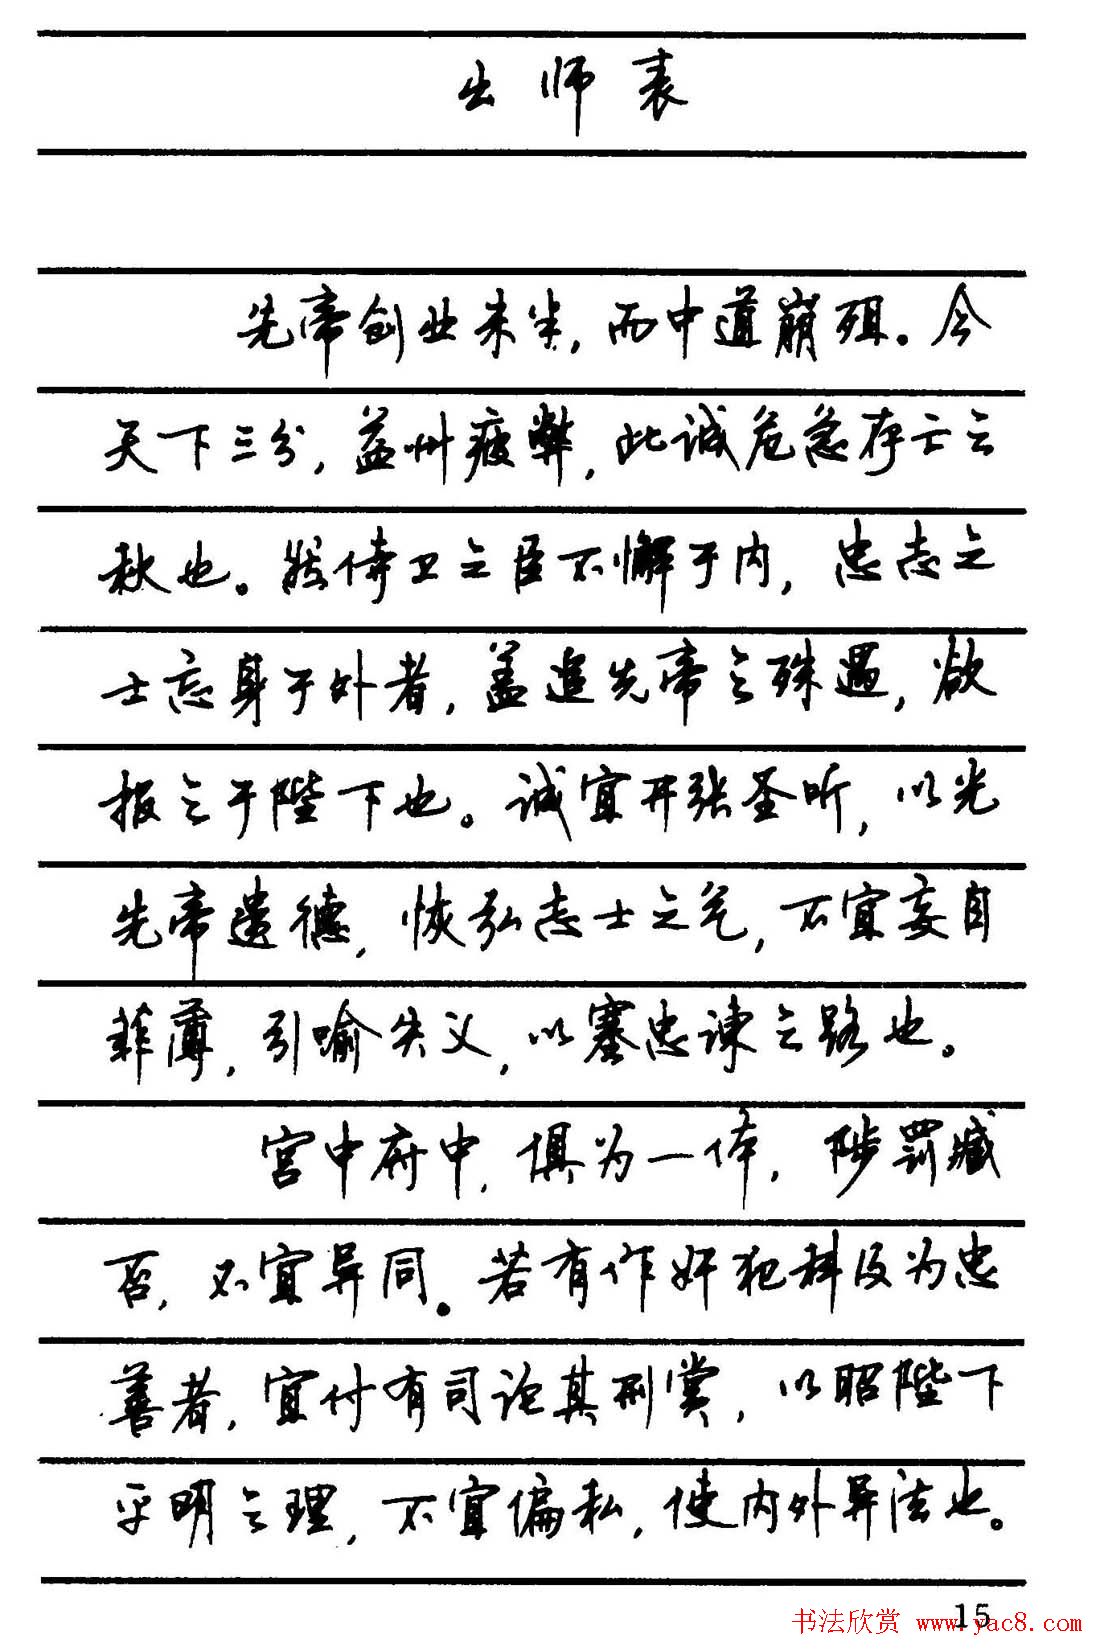 出师表
先帝创业未半，而中道崩殂。今
天下三分，益州疲弊，此诚危急存亡之
秋也。然侍卫之臣不懈于内，忠志之
士忘身于外者，盖追先帝之殊遇，欲
报之于陛下也。诚宜开张圣听，以光
先帝遗德，恢弘志士之气，不宜妄自
菲薄，引喻失义，以塞忠谏之路也。
宫中府中，俱为一体，陟罚臧
否，不宜异同。若有作奸犯科及为忠
善者，宜付有司论其刑赏，以昭陛下
平明之理，不宜偏私，使内外异法也。
15
书法欣赏 www.yac8.com